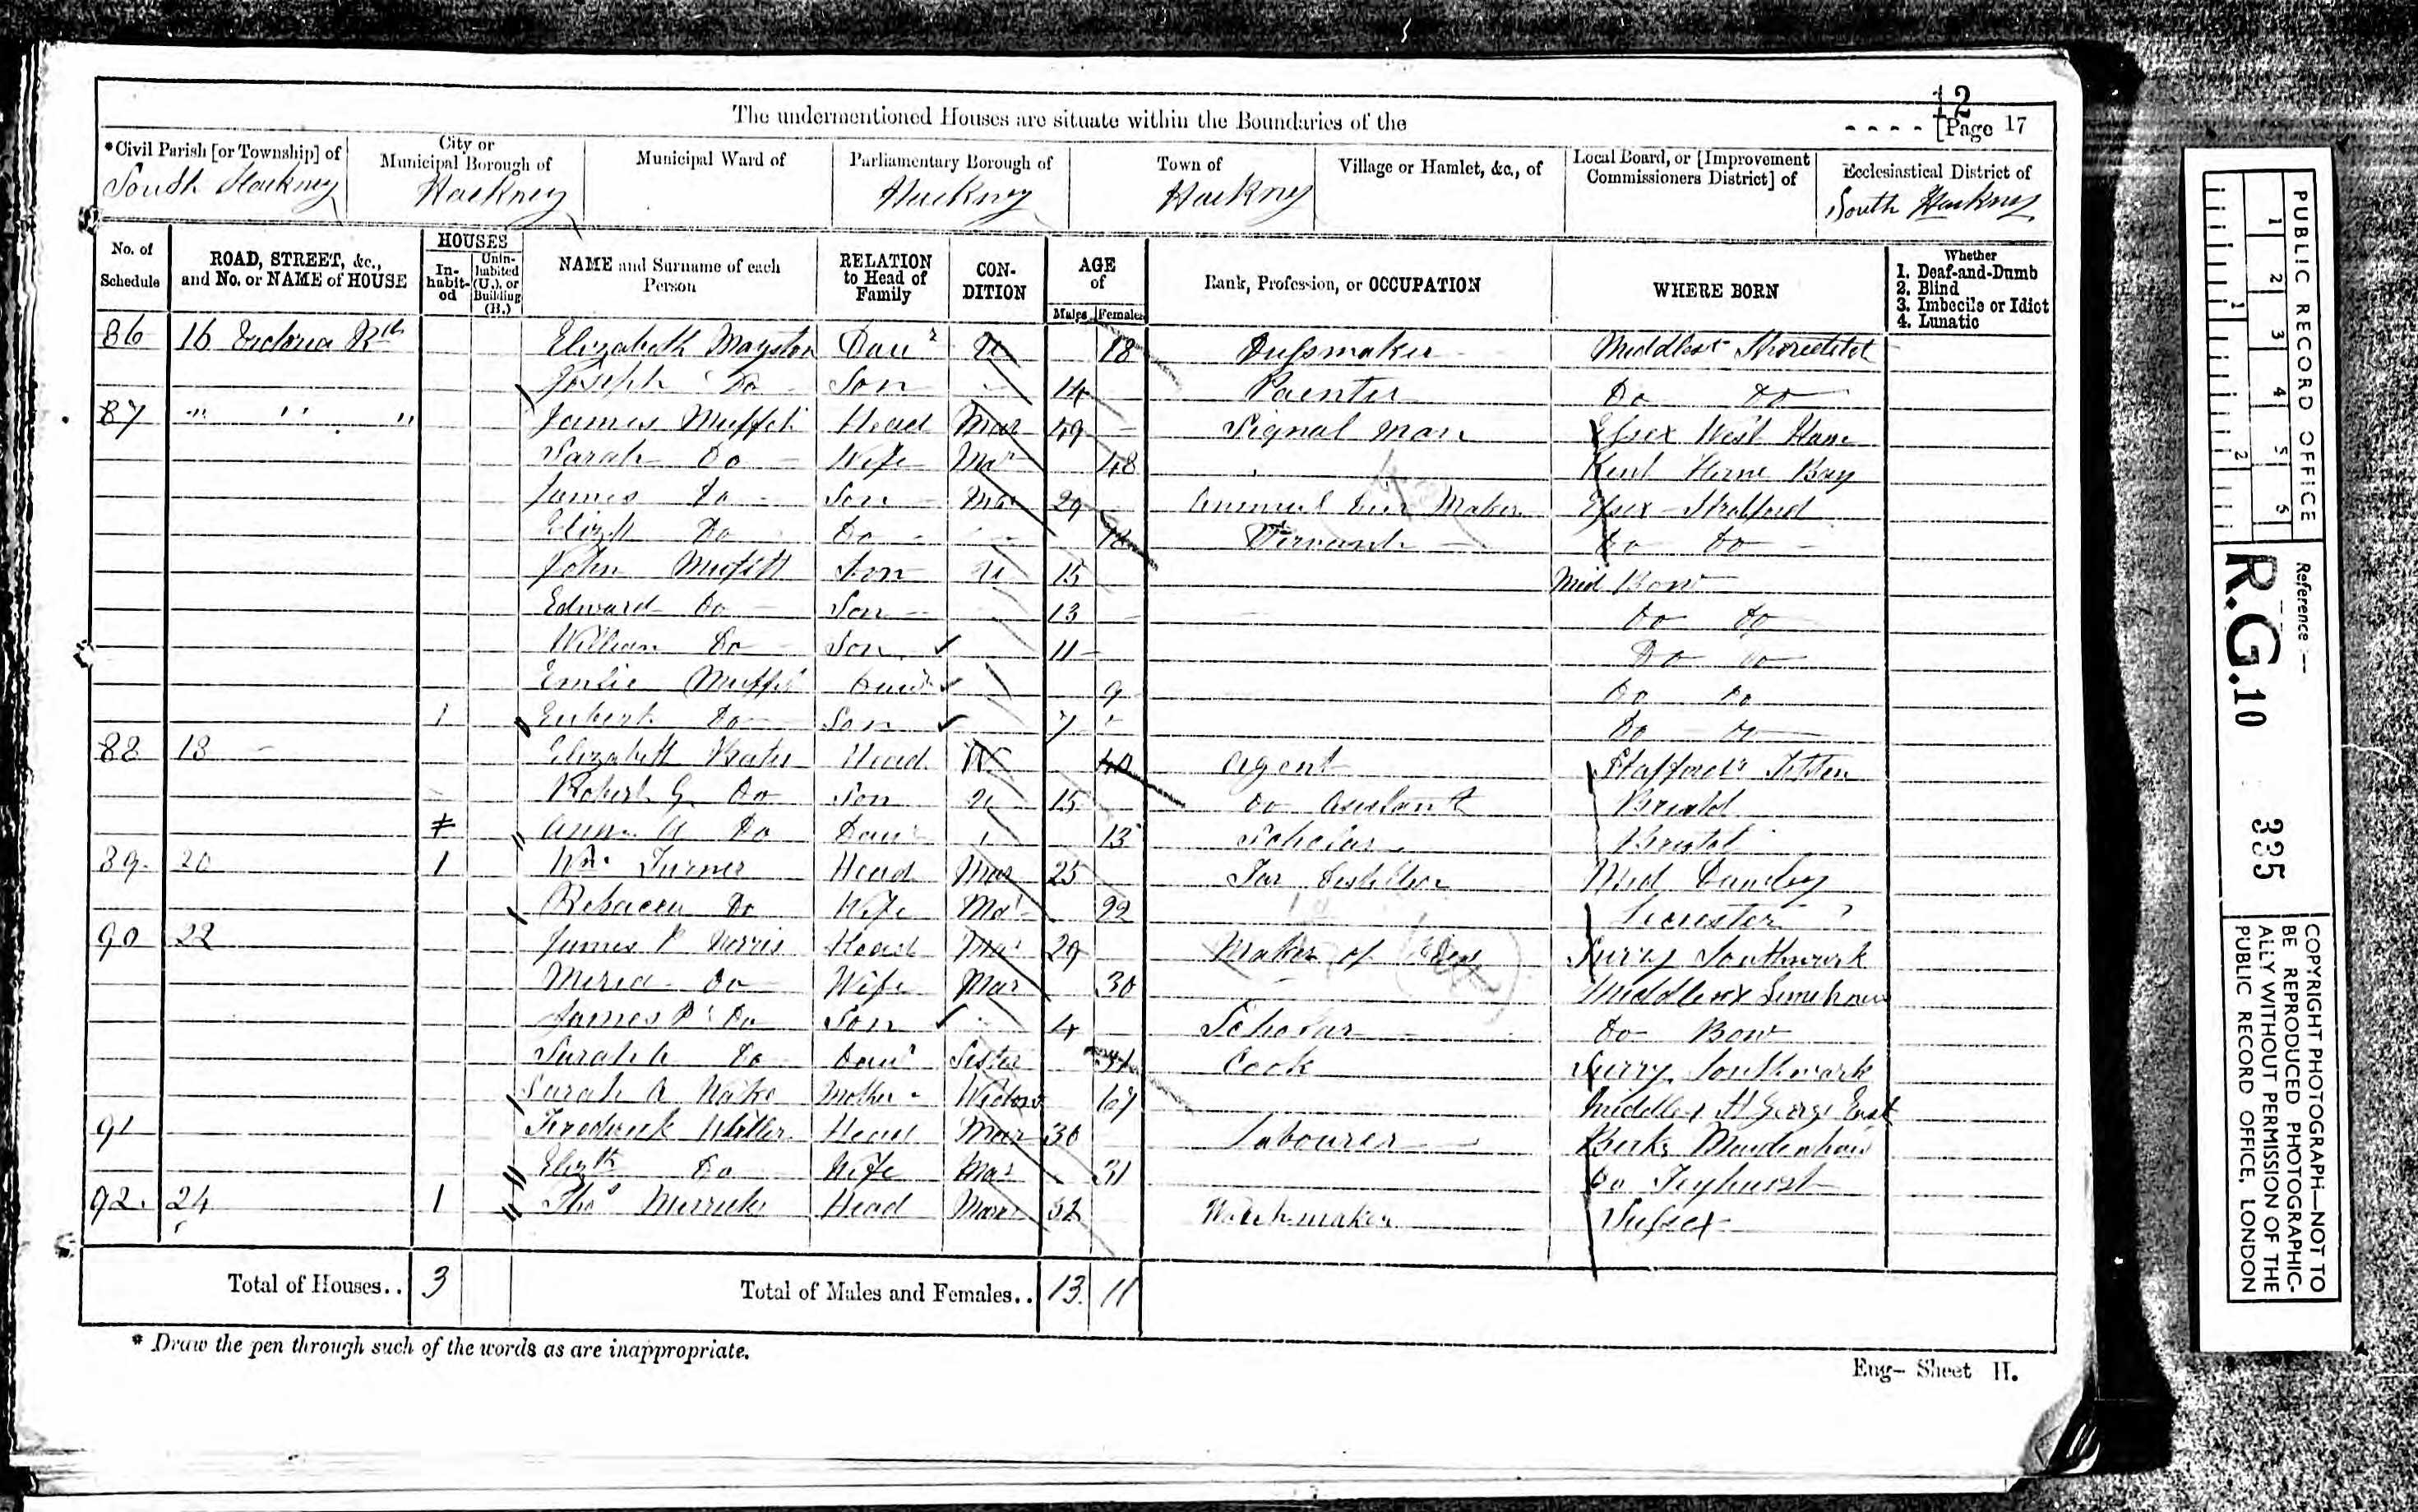 12
The undermentioned Houses are situate within the Boundaries of the
[Page 17
*Civil Parish [or Township] of
South Hackney
City or Municipal Borough of
Hackney
Municipal Ward of
Parliamentary Borough of
Hackney
Town of
Hackney
Village or Hamlet, &c., of
Local Board, or [Improvement Commissioners District] of
Ecclesiastical District of
South Hackney
No. of Schedule
ROAD, STREET, &c., and No. or NAME of HOUSE
HOUSES
Inhabited
Uninhabited (U.), or Building (B.)
NAME and Surname of each Person
RELATION to Head of Family
CONDITION
AGE of
Males
Females
Rank, Profession, or OCCUPATION
WHERE BORN
Whether
1. Deaf-and-Dumb
2. Blind
3. Imbecile or Idiot
4. Lunatic
86 16 Victoria Rd Elizabeth Mayston Daur U 18 Middlesex
Joseph Do Son 14 Painter Do Do
87 " " " James Head Mar 49 Signal Man Essex West Ham
Sarah Do Wife Mar 48 Kent Herne Bay
James Do Son Mar 29 Maker Essex Stratford
Elizth Do Do 18 Servant Do Do
John Son U 15 Mid Bow
Edward Do Son 13 Do Do
William Do Son 11 Do Do
9 Do Do
1 Do Son 7 Do Do
88 18 Elizabeth Head W 40 Agent
Robert G Do Son U 15 Do Assistant Bristol
Ann A Do Daur 13 Scholar Bristol
89 20 1 Wm Turner Head Mar 25 Tar Distiller Mid
Do Wife Mar 22 Leicester
90 22 James P Norris Head Mar 29 Maker of Surry Southwark
Do Wife Mar 30 Middlesex Limehouse
James P Do Son 4 Scholar Do Bow
Sarah A Do Daur Sister Cook Surry Southwark
Sarah A Mother Widow 67 Middlesex St George East
91 Head Mar 30 Labourer Berks Maidenhead
Elizth Do Wife Mar 31 Do
92 24 1 Thos Head Mar 32 Watchmaker Sussex
Total of Houses.. 3
Total of Males and Females.. 13 11
* Draw the pen through such of the words as are inappropriate.
Eng- Sheet H.
PUBLIC RECORD OFFICE
1 2 3 4 5
1 2
Reference :—
R.G. 10 335
COPYRIGHT PHOTOGRAPH—NOT TO
BE REPRODUCED PHOTOGRAPHIC-
ALLY WITHOUT PERMISSION OF THE
PUBLIC RECORD OFFICE, LONDON